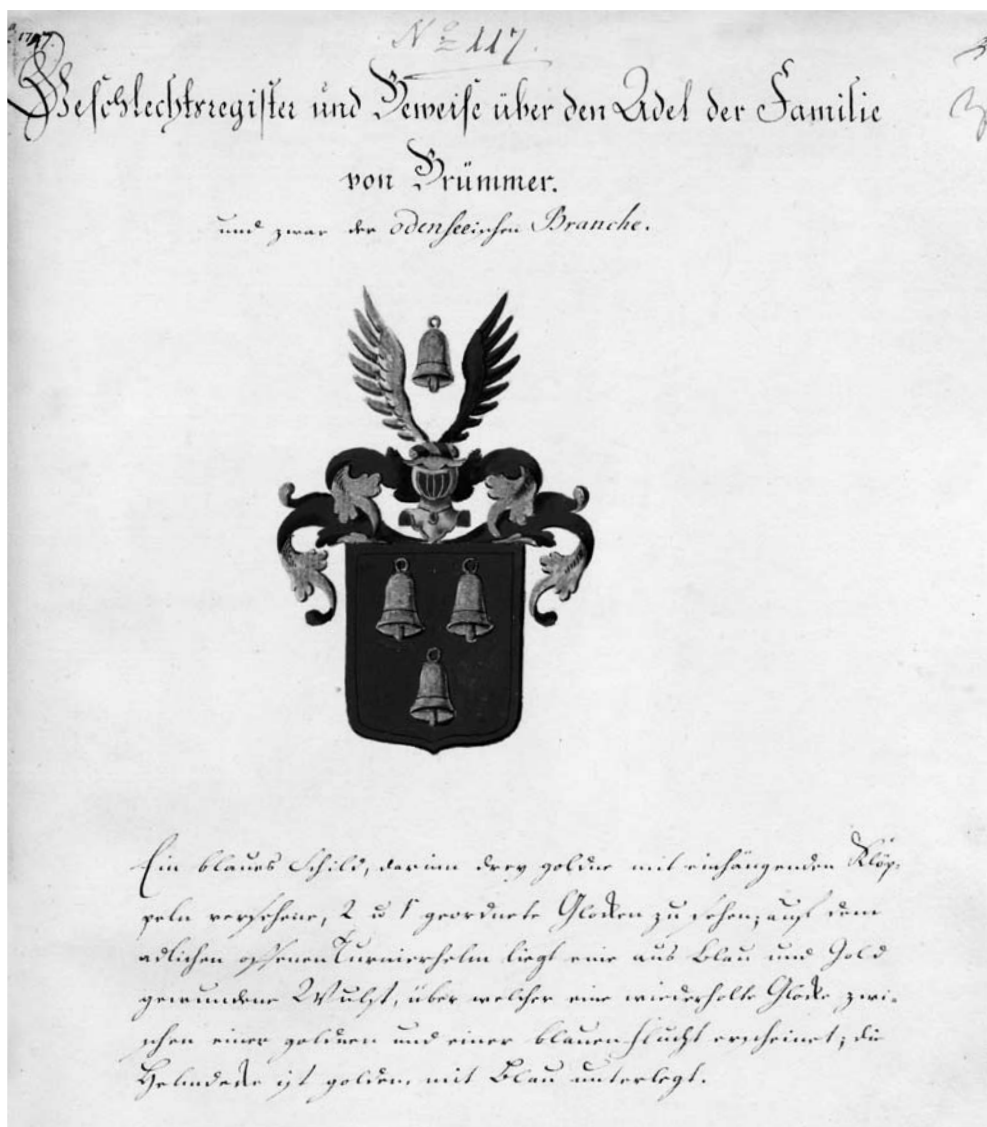 1797.
No 117.
Geschlechtsregister und Beweise über den Adel der Familie
von Brümmer.
und zwar der Odenseeischen Branche.
Ein blaues Schild, darinn drey goldne mit einhängenden Klöp-
peln versehene, 2 u 1 geordnete Glocken zu sehen; auf dem
adlichen offenen Turnierhelm liegt eine aus Blau und Gold
gewundene Wulst, über welcher eine wiederholte Glocke zwi-
schen einer goldnen und einer blauen Flucht erscheinet; die
Helmdecke ist golden, mit Blau unterlegt.